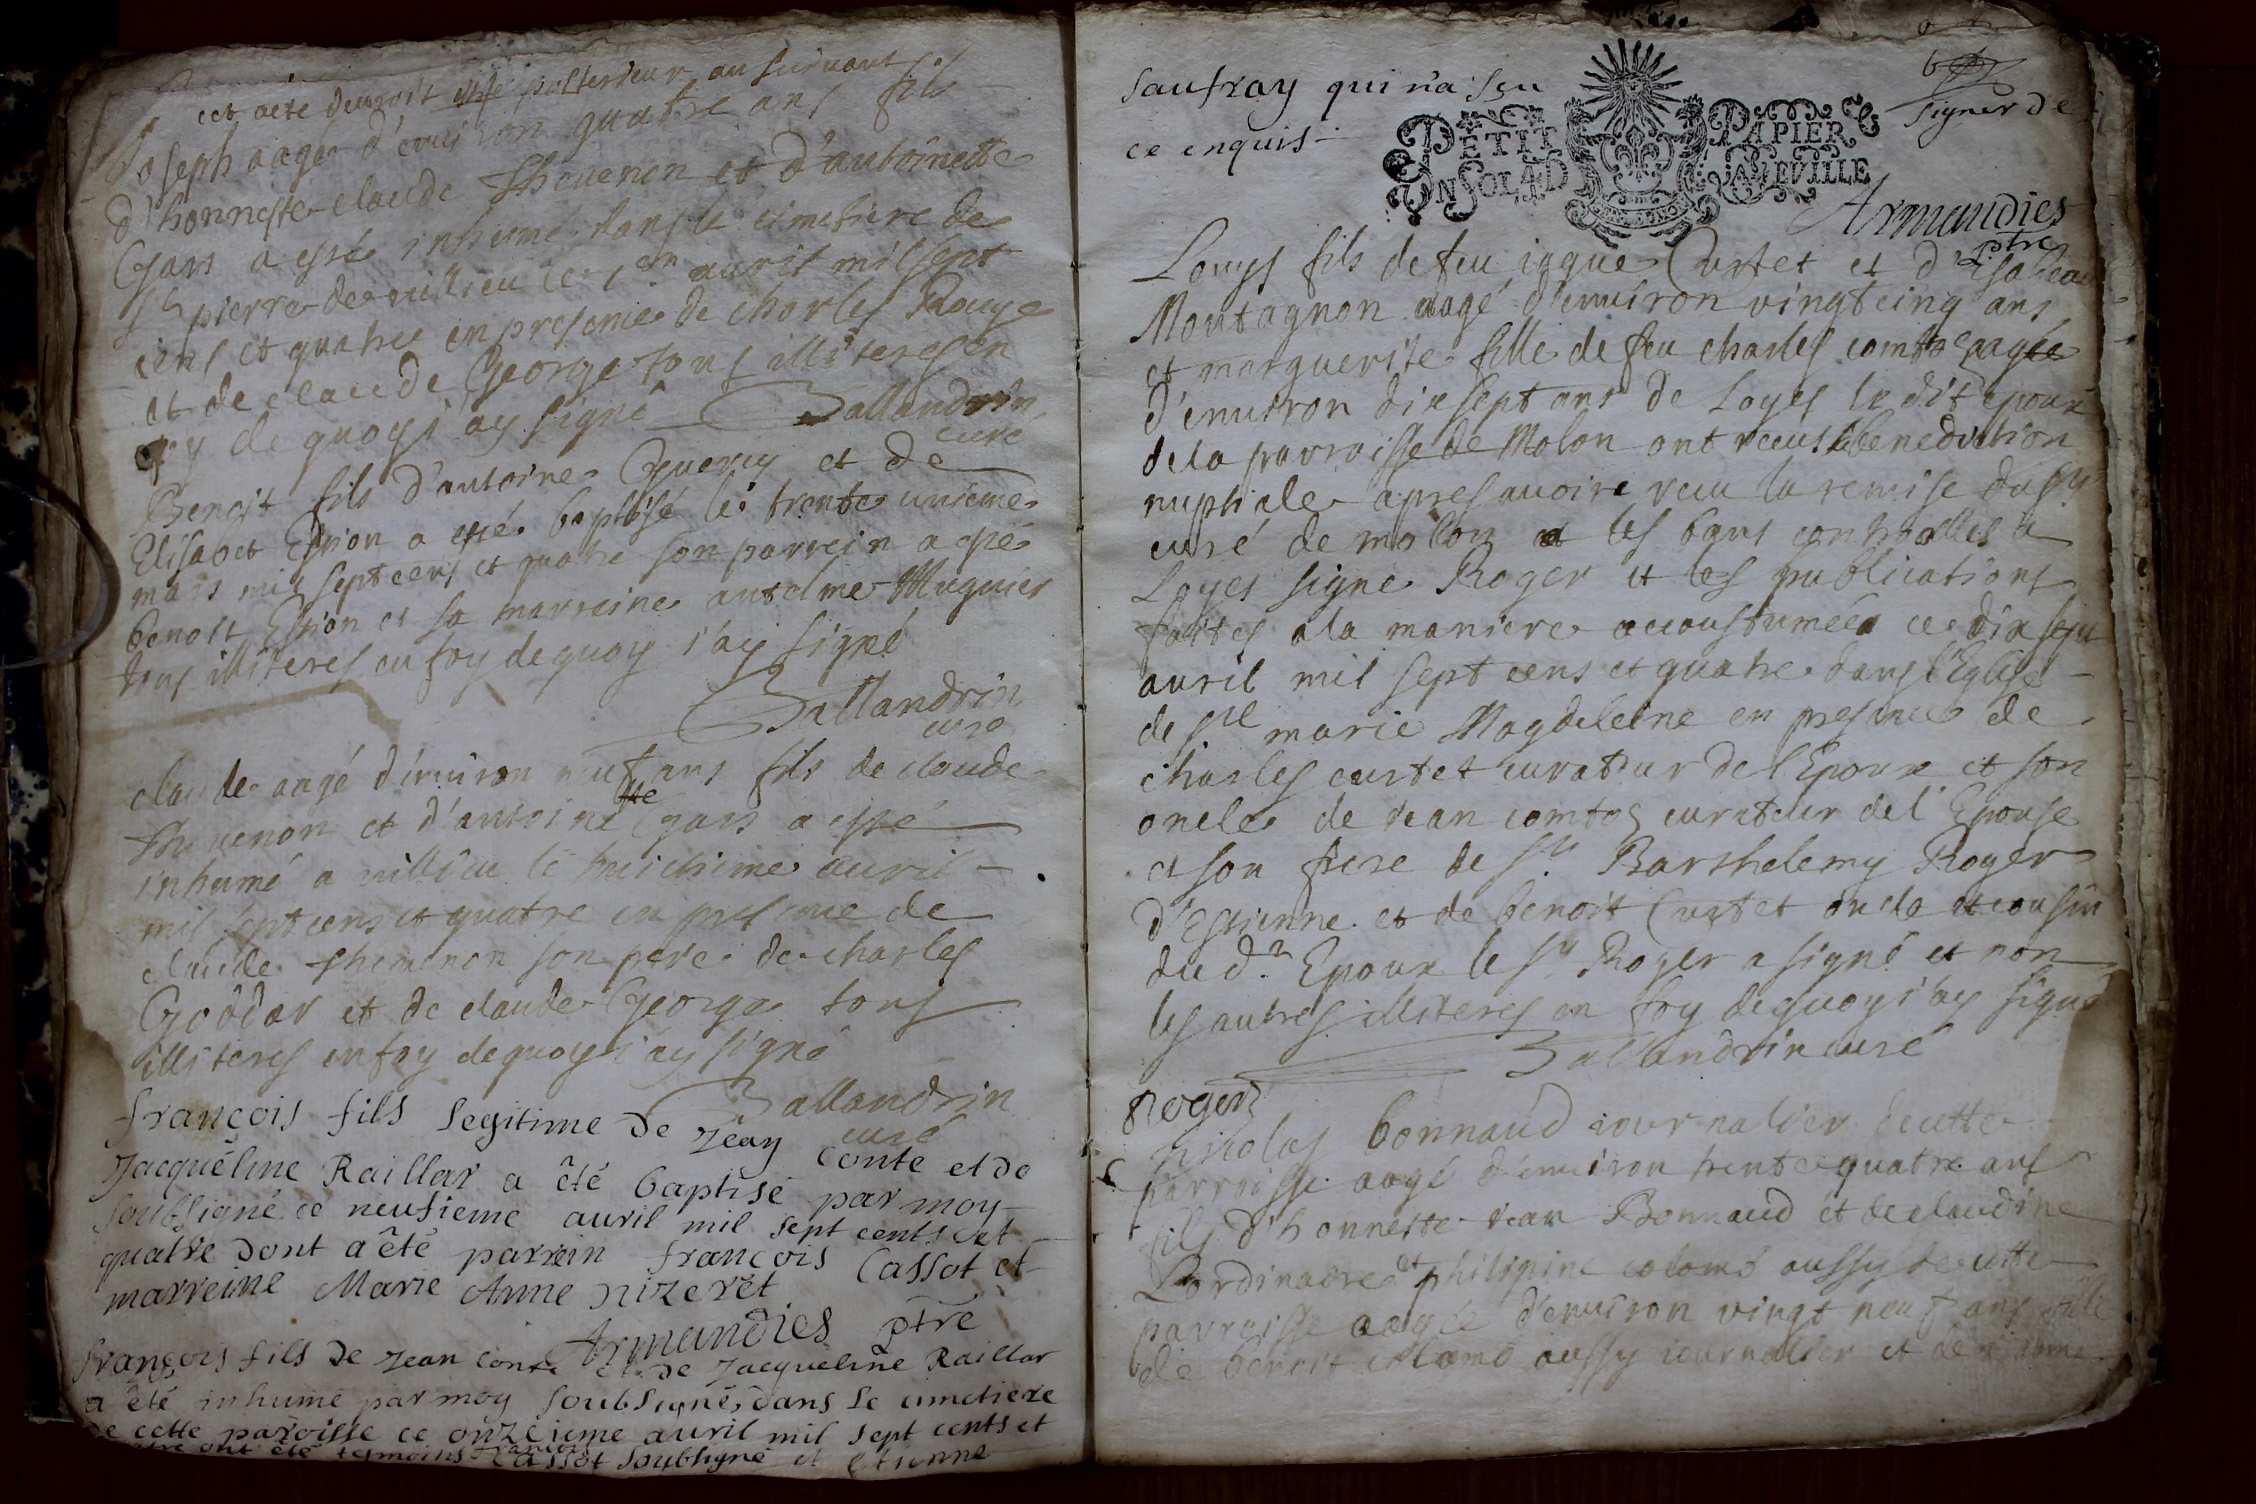 cet acte devroit estre posterieur au suivant
Joseph aagé d'environ quatre ans fils
d'honneste claude Thevenon et d'antoinette
Gars a esté inhumé dans le cimetiere de
St pierre de villieu le avril mil sept
cens et quatre en presence de charles Rouge
et de claude George tous illiteres en
foy de quoy j'ay signé Ballandrin
curé
Benoit fils d'antoine Guerry et de
Elisabet Estion a esté baptisé le trente unieme
mars mil sept cens et quatre son parrein a esté
benoit Estion et sa marreine antelme Muguier
tous illiteres en foy de quoy j'ay signé
Ballandrin
curé
claude aagé d'environ neuf ans fils de claude
Thevenon et d'antoinette Gars a esté
inhumé a villieu le huichime avril
mil sept cens et quatre en presence de
claude thevenon son pere de charles
Goddar et de claude George tous
illiteres en foy de quoy j'ay signé
Ballandrin
curé
françois fils legitime de Jean Conte et de
Jacquéline Raillar a êté baptisé par moy
soubsigné ce neufieme avril mil sept cents et
quatre dont a êté parrein françois Cassot et
marreine Marie Anne nizeret
Armandies ptre
françois fils de Jean Conte et de Jacqueline Raillar
a êté inhumé par moy soubsigné dans le cimetiere
de cette paroisse ce onzeieme avril mil sept cents et
ont êté temoins françois Cassot soubsigné et etienne
saufray qui n'a sçu signer de
ce enquis
PETIT PAPIER
UN SOL 4 D LA FEVILLE
Armandies
ptre
Louys fils de feu jaque Curtet et d'Isabeau
Montagnon aagé d'environ vingt cinq ans
et marguerite fille de feu charles comtos agée
d'environ dix sept ans de Loyes le dit epoux
de la parroisse de Molon ont receus la benediction
nuptiale apres avoir receu la remise du Sr
curé de molon et les bans controlles a
Loyes signe Roger et les publications
faites a la maniere accoustumée ce dix sept
avril mil sept cens et quatre dans l'Eglise
de Ste marie Magdeleine en presence de
charles curtet curateur de l'Epoux et son
oncle de jean comtos curateur de l'Epouse
et son frere de Sr Barthelemy Roger
d'Estienne et de benoit Curtet oncle et cousin
du dt Epoux le Sr Roger a signé et non
les autres illiteres en foy de quoy j'ay signé
Ballandrin curé
Roger
Nicolas bonnaud journalier de cette
parroisse aagé d'environ trente quatre ans
fils d'honneste jean Bonnaud et de claudine
Lordinaire et philipine colomb aussy de cette
parroisse aagée d'environ vingt neuf ans fille
de benoit colomb aussy journalier et de